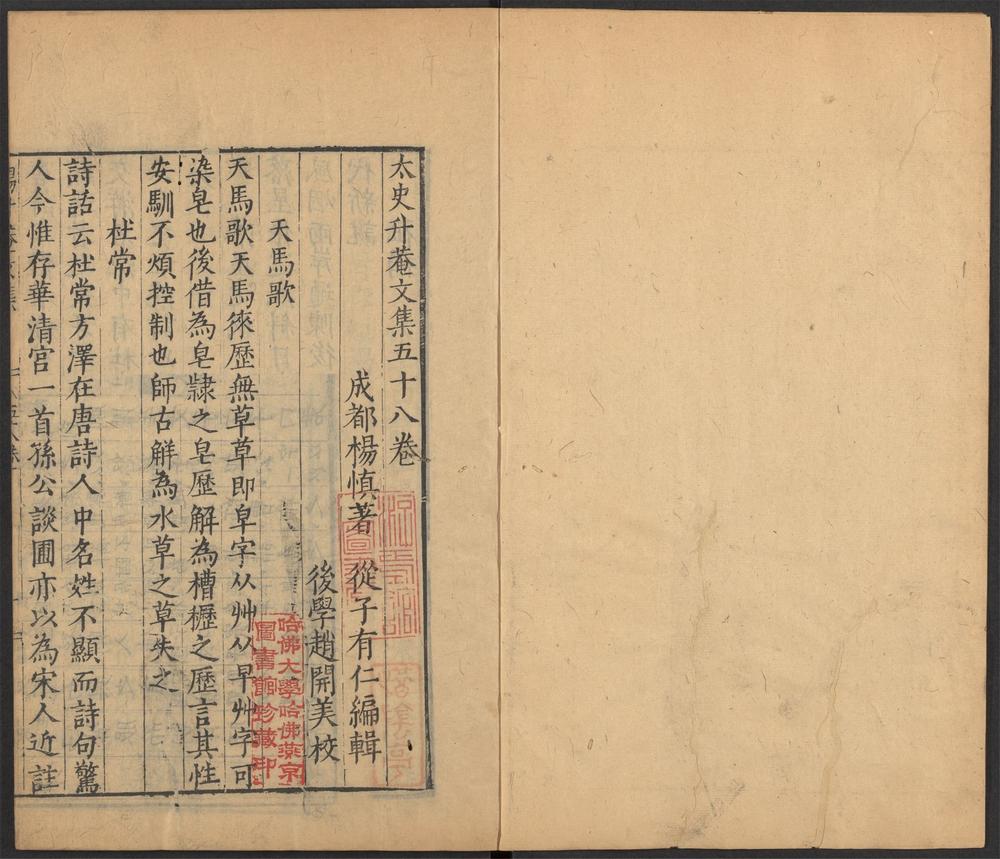 太史升菴文集五十八卷
成都楊慎著 從子有仁編輯
後學趙開美校
天馬歌
天馬歌天馬徠歷無草草即皁字从艸从早艸字可
染皂也後借為皂隸之皂歷解為槽櫪之歷言其性
安馴不煩控制也師古觧為水草之草失之
杜常
詩話云杜常方澤在唐詩人中名姓不顯而詩句驚
人今惟存華清宮一首孫公談圃亦以為宋人近註
哈佛大學哈佛燕京
圖書館珍藏印